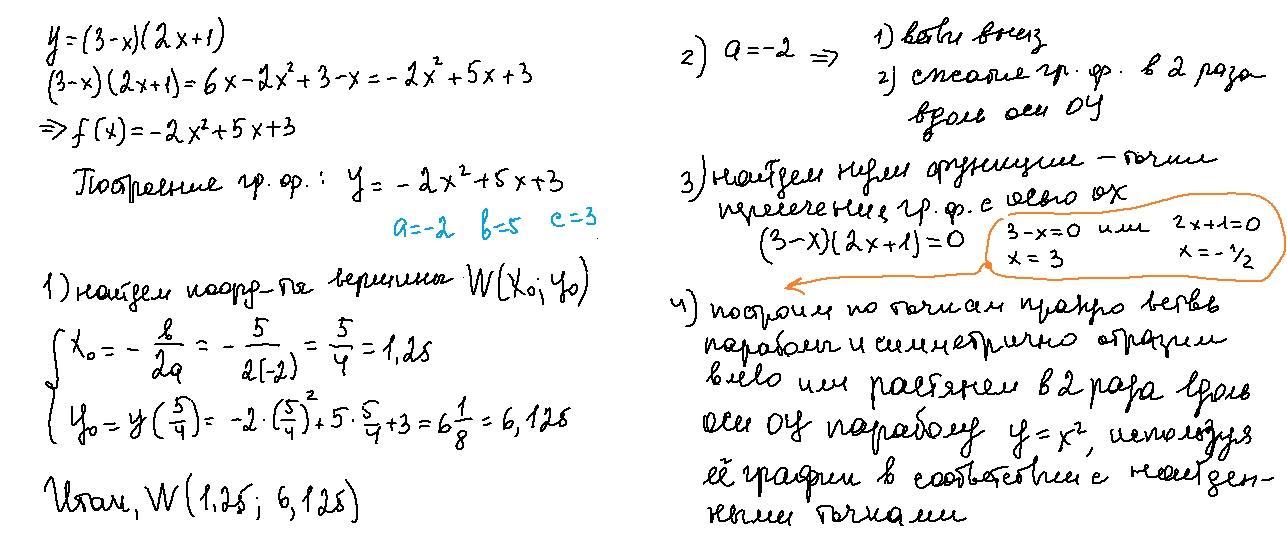 y=(3-x)(2x+1)
(3-x)(2x+1)=6x-2x²+3-x=-2x²+5x+3
=> f(x)=-2x²+5x+3
Построение гр. ф.: y=-2x²+5x+3
a=-2 b=5 c=3
1) найдем коорд-ты вершины W(x₀; y₀)
x₀ = - b/2a = - 5/2(-2) = 5/4 = 1,25
y₀ = y(5/4) = -2·(5/4)²+5·5/4+3 = 6 1/8 = 6,125
Итак, W(1,25; 6,125)
2) a=-2 => 1) ветви вниз
2) сжатие гр. ф. в 2 раза
вдоль оси OY
3) найдем нули функции – точки
пересечения гр. ф. с осью OX
(3-x)(2x+1)=0
3-x=0 или 2x+1=0
x=3 x=-1/2
4) построим по точкам правую ветвь
параболы и симметрично отразим
влево или растянем в 2 раза вдоль
оси OY параболу y=x², используя
её график в соответствии с найден-
ными точками